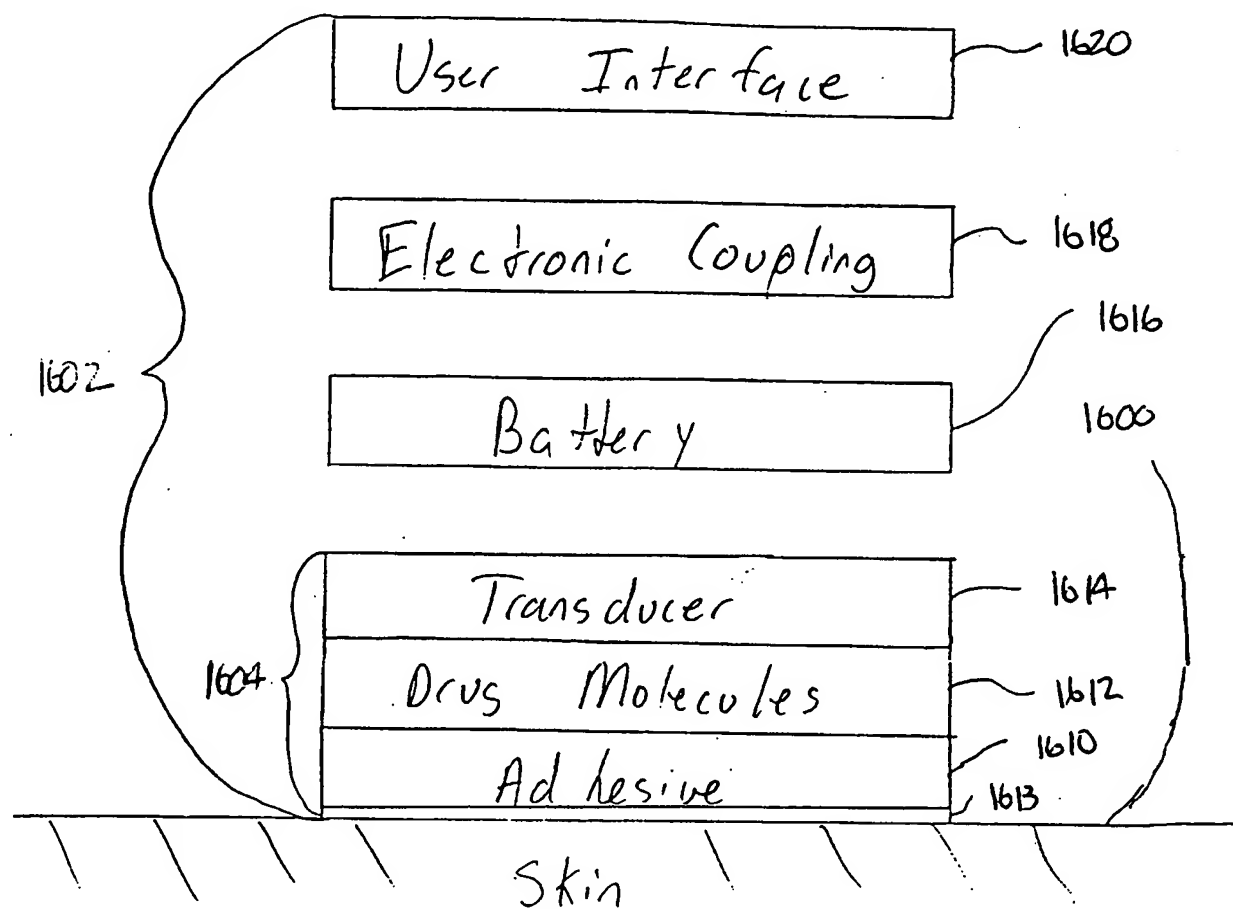 User Interface
1620
Electronic Coupling
1618
1616
1602
Battery
1600
Transducer
1614
1604
Drug Molecules
1612
1610
Adhesive
1613
Skin